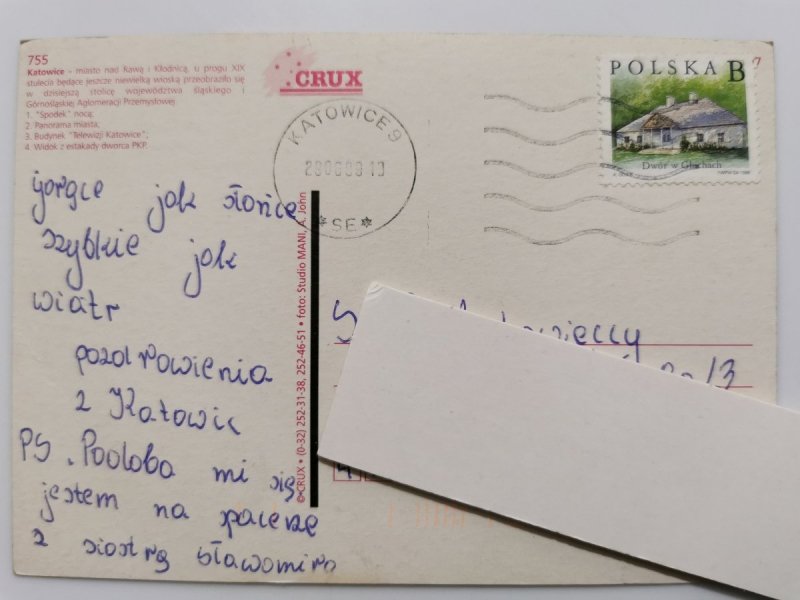 755
Katowice - miasto nad Rawą i Kłodnicą, u progu XIX
stulecia będące jeszcze niewielką wioską przeobraziło się
w dzisiejszą stolicę województwa śląskiego i
Górnośląskiej Aglomeracji Przemysłowej.
1. "Spodek" nocą;
2. Panorama miasta;
3. Budynek "Telewizji Katowice";
4. Widok z estakady dworca PKP.
CRUX
KATOWICE 9
SE
POLSKA B
Dwór w Głuchach
gorące jak słońce
szybkie jak
wiatr
pozdrowienia
z Katowic
PS. Podoba mi się
jestem na spacerze
z siostrą sławomira
© CRUX • (0-32) 252-31-38, 252-46-51 • foto: Studio MANI, A. John